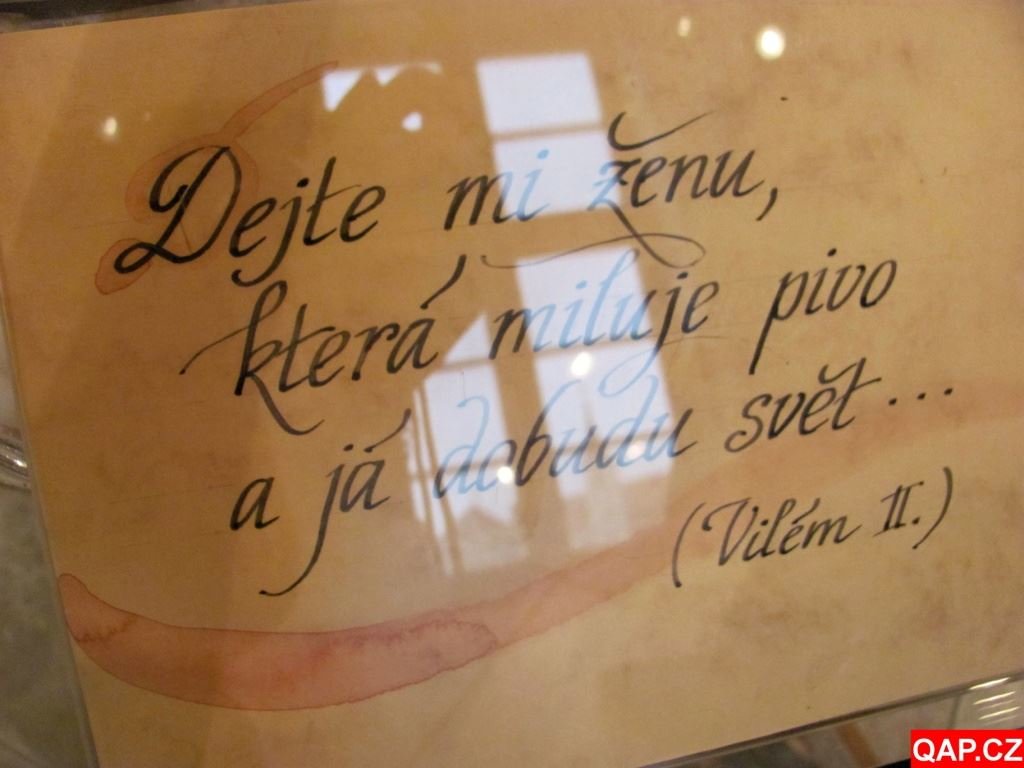 Dejte mi ženu,
která miluje pivo
a já dobudu svět...
(Vilém II.)
QAP.CZ